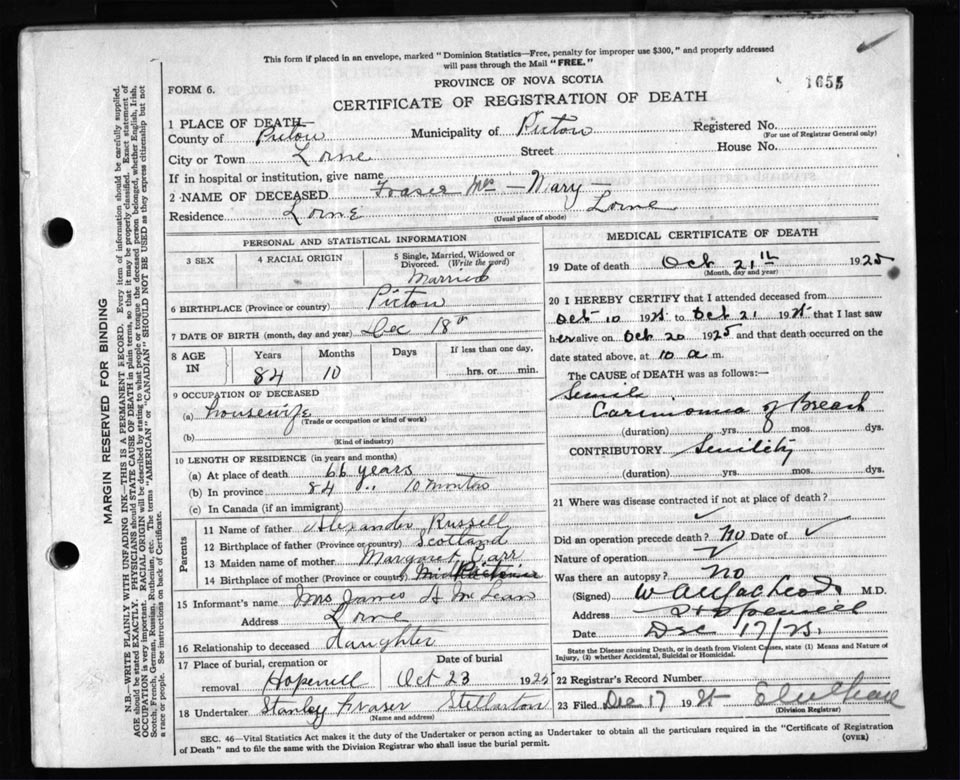 This form if placed in an envelope, marked "Dominion Statistics—Free, penalty for improper use $300," and properly addressed
will pass through the Mail "FREE."
PROVINCE OF NOVA SCOTIA
1655
FORM 6.
CERTIFICATE OF REGISTRATION OF DEATH
1 PLACE OF DEATH
County of Pictou Municipality of Pictou Registered No.
(For use of Registrar General only)
City or Town Lorne Street House No.
If in hospital or institution, give name
2 NAME OF DECEASED Fraser Mrs — Mary —
Residence Lorne Lorne
(Usual place of abode)
PERSONAL AND STATISTICAL INFORMATION
3 SEX
4 RACIAL ORIGIN
5 Single, Married, Widowed or
Divorced. (Write the word)
Married
6 BIRTHPLACE (Province or country) Pictou
7 DATE OF BIRTH (month, day and year) Dec 18
8 AGE IN
Years Months Days If less than one day,
84 10 hrs. or min.
9 OCCUPATION OF DECEASED
(a) housewife
(Trade or occupation or kind of work)
(b)
(Kind of industry)
10 LENGTH OF RESIDENCE (in years and months)
(a) At place of death 66 years
(b) In province 84 " 10 months
(c) In Canada (if an immigrant)
Parents
11 Name of father Alexander Russell
12 Birthplace of father (Province or country) Scotland
13 Maiden name of mother Margaret Carr
14 Birthplace of mother (Province or country)
15 Informant's name Mrs James A McLean
Address Lorne
16 Relationship to deceased daughter
17 Place of burial, cremation or Date of burial
removal Hopewell Oct 23 1925
18 Undertaker Stanley Fraser Stellarton
(Name and address)
MEDICAL CERTIFICATE OF DEATH
19 Date of death Oct 21th 1925
(Month, day and year)
20 I HEREBY CERTIFY that I attended deceased from
Oct 10 1925 to Oct 21 1925 that I last saw
her alive on Oct 20 1925 and that death occurred on
date stated above, at 10 a m.
The CAUSE of DEATH was as follows:—
Senile
Carcinomia of Breast
(duration) yrs. mos. dys.
CONTRIBUTORY Senility
(duration) yrs. mos. dys.
21 Where was disease contracted if not at place of death?
✓
Did an operation precede death? No Date of ✓
Nature of operation ✓
Was there an autopsy? No
(Signed) M.D.
Address Hopewell
Date Dec 17/25.
State the Disease causing Death, or in death from Violent Causes, state (1) Means and Nature of
Injury, (2) whether Accidental, Suicidal or Homicidal.
22 Registrar's Record Number
23 Filed Dec 17 1925
(Division Registrar)
SEC. 46—Vital Statistics Act makes it the duty of the Undertaker or person acting as Undertaker to obtain all the particulars required in the "Certificate of Registration
of Death" and to file the same with the Division Registrar who shall issue the burial permit. (OVER)
MARGIN RESERVED FOR BINDING
N.B.—WRITE PLAINLY WITH UNFADING INK—THIS IS A PERMANENT RECORD. Every item of information should be carefully supplied.
AGE should be stated EXACTLY. PHYSICIANS should STATE CAUSE OF DEATH in plain terms, so that it may be properly classified. Exact statement of
OCCUPATION is very important. RACIAL ORIGIN will be described by stating to what people or tongue the deceased person belonged, whether English, Irish,
Scotch, French, German, Russian, Ruthenian, etc. The terms "AMERICAN" or "CANADIAN" SHOULD NOT BE USED as they express citizenship but not
a race or people. See instructions on back of Certificate.